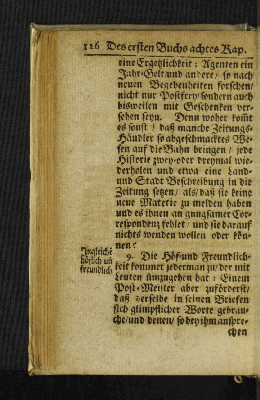 126 Des ersten Buchs achtes Kap.
eine Ergetzlichkeit: Agenten ein
Jahr-Gelt/und andere/ so nach
neuen Begebenheiten forschen/
nicht nur Postfrey/sondern auch
bisweilen mit Geschenken ver-
sehen seyn. Denn woher komt
es sonst/ daß manche Zeitungs-
Händler so abgeschmacktes We-
sen auf die Bahn bringen/ jede
Historie zwey-oder dreymal wie-
derholen und etwa eine Land-
und Stadt Beschreibung in die
Zeitung setzen/ als/daß sie keine
neue Materie zu melden haben
und es ihnen an gnugsamer Cor-
respondentz fehlet/ und sie darauf
nichts wenden wollen oder kön-
nen?
Ingleichē
höflich uñ
freundlich
9. Die Höf-und Freundlich-
keit kommet jederman zu/der mit
Leuten ümzugehen hat: Einem
Post-Meister aber zuförderst/
daß derselbe in seinen Briefen
sich glimpflicher Worte gebrau-
che/und denen/ so bey ihm anspre-
chen